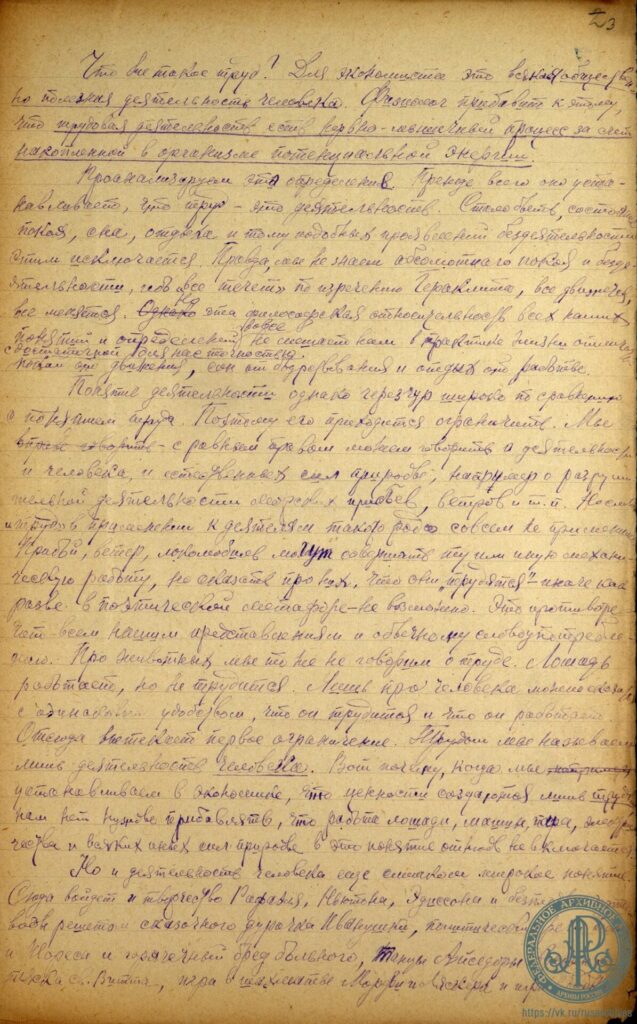 23
Что же такое труд? Для экономиста это всякая обществен-
но полезная деятельность человека. Физиолог прибавит к этому,
что трудовая деятельность есть нервно-мышечный процесс за счет
накопленной в организме потенциальной энергии.
Проанализируем эти определения. Прежде всего оно уста-
навливает, что труд - это деятельность. Стало быть, состояние
покоя, сна, отдыха и тому подобных проявлений бездеятельности
этим исключается. Правда мы не знаем абсолютного покоя и безде-
ятельности, ибо все течет по изречению Гераклита, все движется,
все меняется. Однако эта философская относительность всех наших
понятий и определений вовсе не мешает нам в практике жизни отличать
с достаточной для нас точностью
покой от движения, сон от бодрствования и отдых от работы.
Понятие деятельности однако чересчур широко по сравнению
с понятием труда. Поэтому его приходится ограничить. Мы
с равным правом можем говорить о деятельности
и человека, и естественных сил природы, например о разруши-
тельной деятельности морских прибоев, ветров и т.п. Но слово
труд к деятелям такого рода совсем не применимо
Прибой, ветер, локомобиль могут совершать ту или иную механи-
ческую работу, но сказать про них, что они „трудятся" - иначе как
разве в поэтической метафоре - не возможно. Это противоре-
чит всем нашим представлениям и обычному словоупотребле-
нию. Про животных мы тоже не говорим о труде. Лошадь
работает, но не трудится. Лишь про человека можно сказать
с одинаковым удобством, что он трудится и что он работает.
Отсюда вытекает первое ограничение. Трудом мы называем
лишь деятельность человека. Вот почему, когда мы
устанавливаем в экономике, что ценности создаются лишь трудом
нам нет нужды прибавлять, что работа лошади, машин, пара, электри-
чества и всяких иных сил природы в это понятие отнюдь не включается.
Но и деятельность человека еще слишком широкое понятие.
Сюда войдет и творчество Рафаэля, Ньютона, Эдисона и
воды решетом сказочного дурачка Иванушки, поэтическое
и Гореса и горячечный бред больного, танцы Айседоры
пляска св. Витта, игра в шахматы
ФЕДЕРАЛЬНОЕ АРХИВНОЕ
АРХИВЫ РОССИИ
https://vk.ru/rusarchives